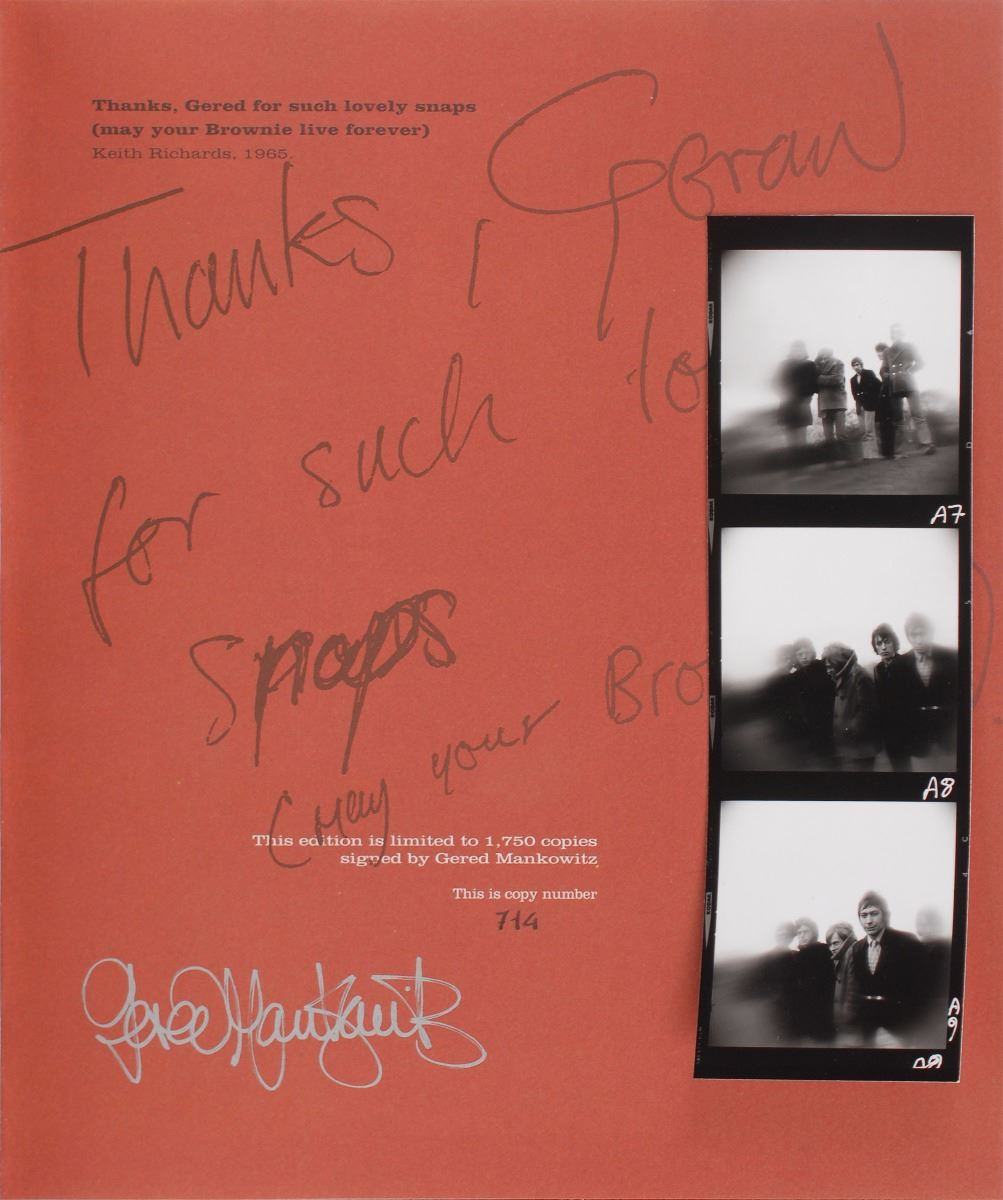 Thanks, Gered for such lovely snaps
(may your Brownie live forever)
Keith Richards, 1965.
Thanks, Gerard
for such lo
snaps
(may your Bro
).
This edition is limited to 1,750 copies
signed by Gered Mankowitz
This is copy number
714
Gered Mankowitz
A7
A8
A9